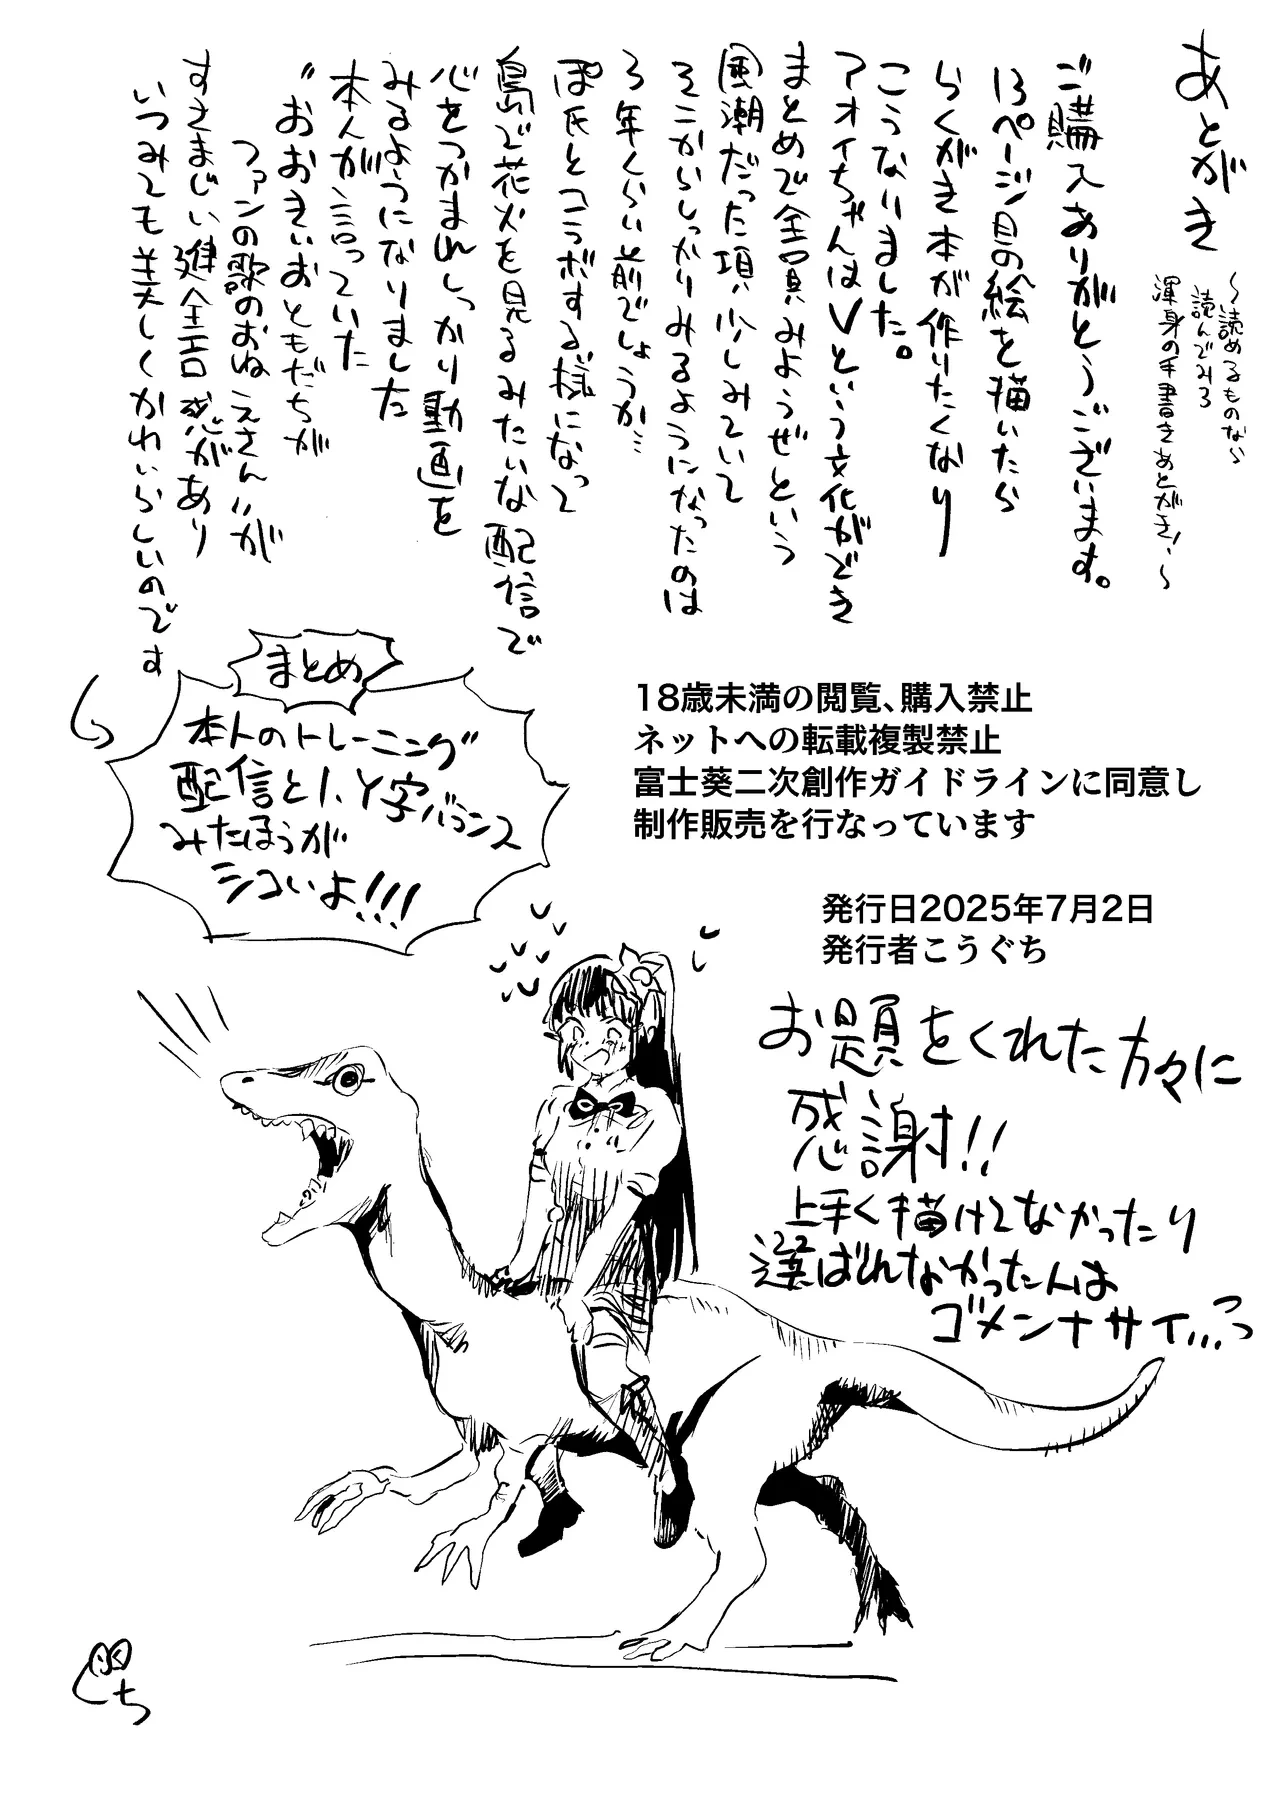 あとがき
～読めるものなら
読んでみろ
渾身の手書きあとがき！～
ご購入ありがとうございます。
13ページ目の絵を描いたら
らくがき本が作りたくなり
こうなりました。
アオイちゃんはVという文化ができ
まとめで全員みようぜという
風潮だった頃少しみていて
そこからしっかりみるようになったのは
3年くらい前でしょうか…
ぽ氏とコラボする様になって
島で花火を見るみたいな配信で
心をつかまれしっかり動画を
みるようになりました
本人が言っていた
"おおきいおともだちが
ファンの歌のおねえさん"が
すさまじい健全エロ感があり
いつみても美しくかわいらしいのです
まとめ
本人のトレーニング
配信と1、Y字バランス
みたほうが
シコいよ!!!
18歳未満の閲覧､購入禁止
ネットへの転載複製禁止
富士葵二次創作ガイドラインに同意し
制作販売を行なっています
発行日2025年7月2日
発行者こうぐち
お題をくれた方々に
感謝!!
上手く描けてなかったり
選ばれなかった人は
ゴメンナサイ…っ